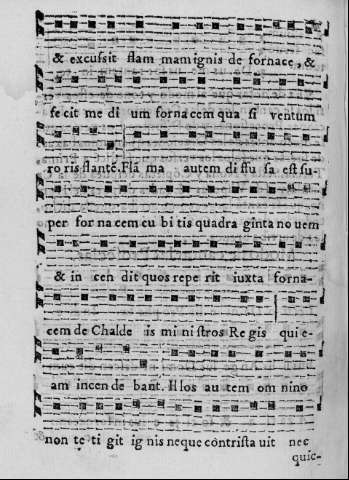 & excussit flam mam ignis de fornace, &
fe cit me di um forna cem qua si ventum
ro ris flantē. Flā ma autem di ffu sa est su-
per for na cem cu bi tis quadra ginta no uem
& in cen dit quos repe rit iuxta forna-
cem de Chalde is mi ni stros Re gis qui e-
am incen de bant. Illos au tem om nino
non te ti git ig nis neque cōntrista uit nec
quic-